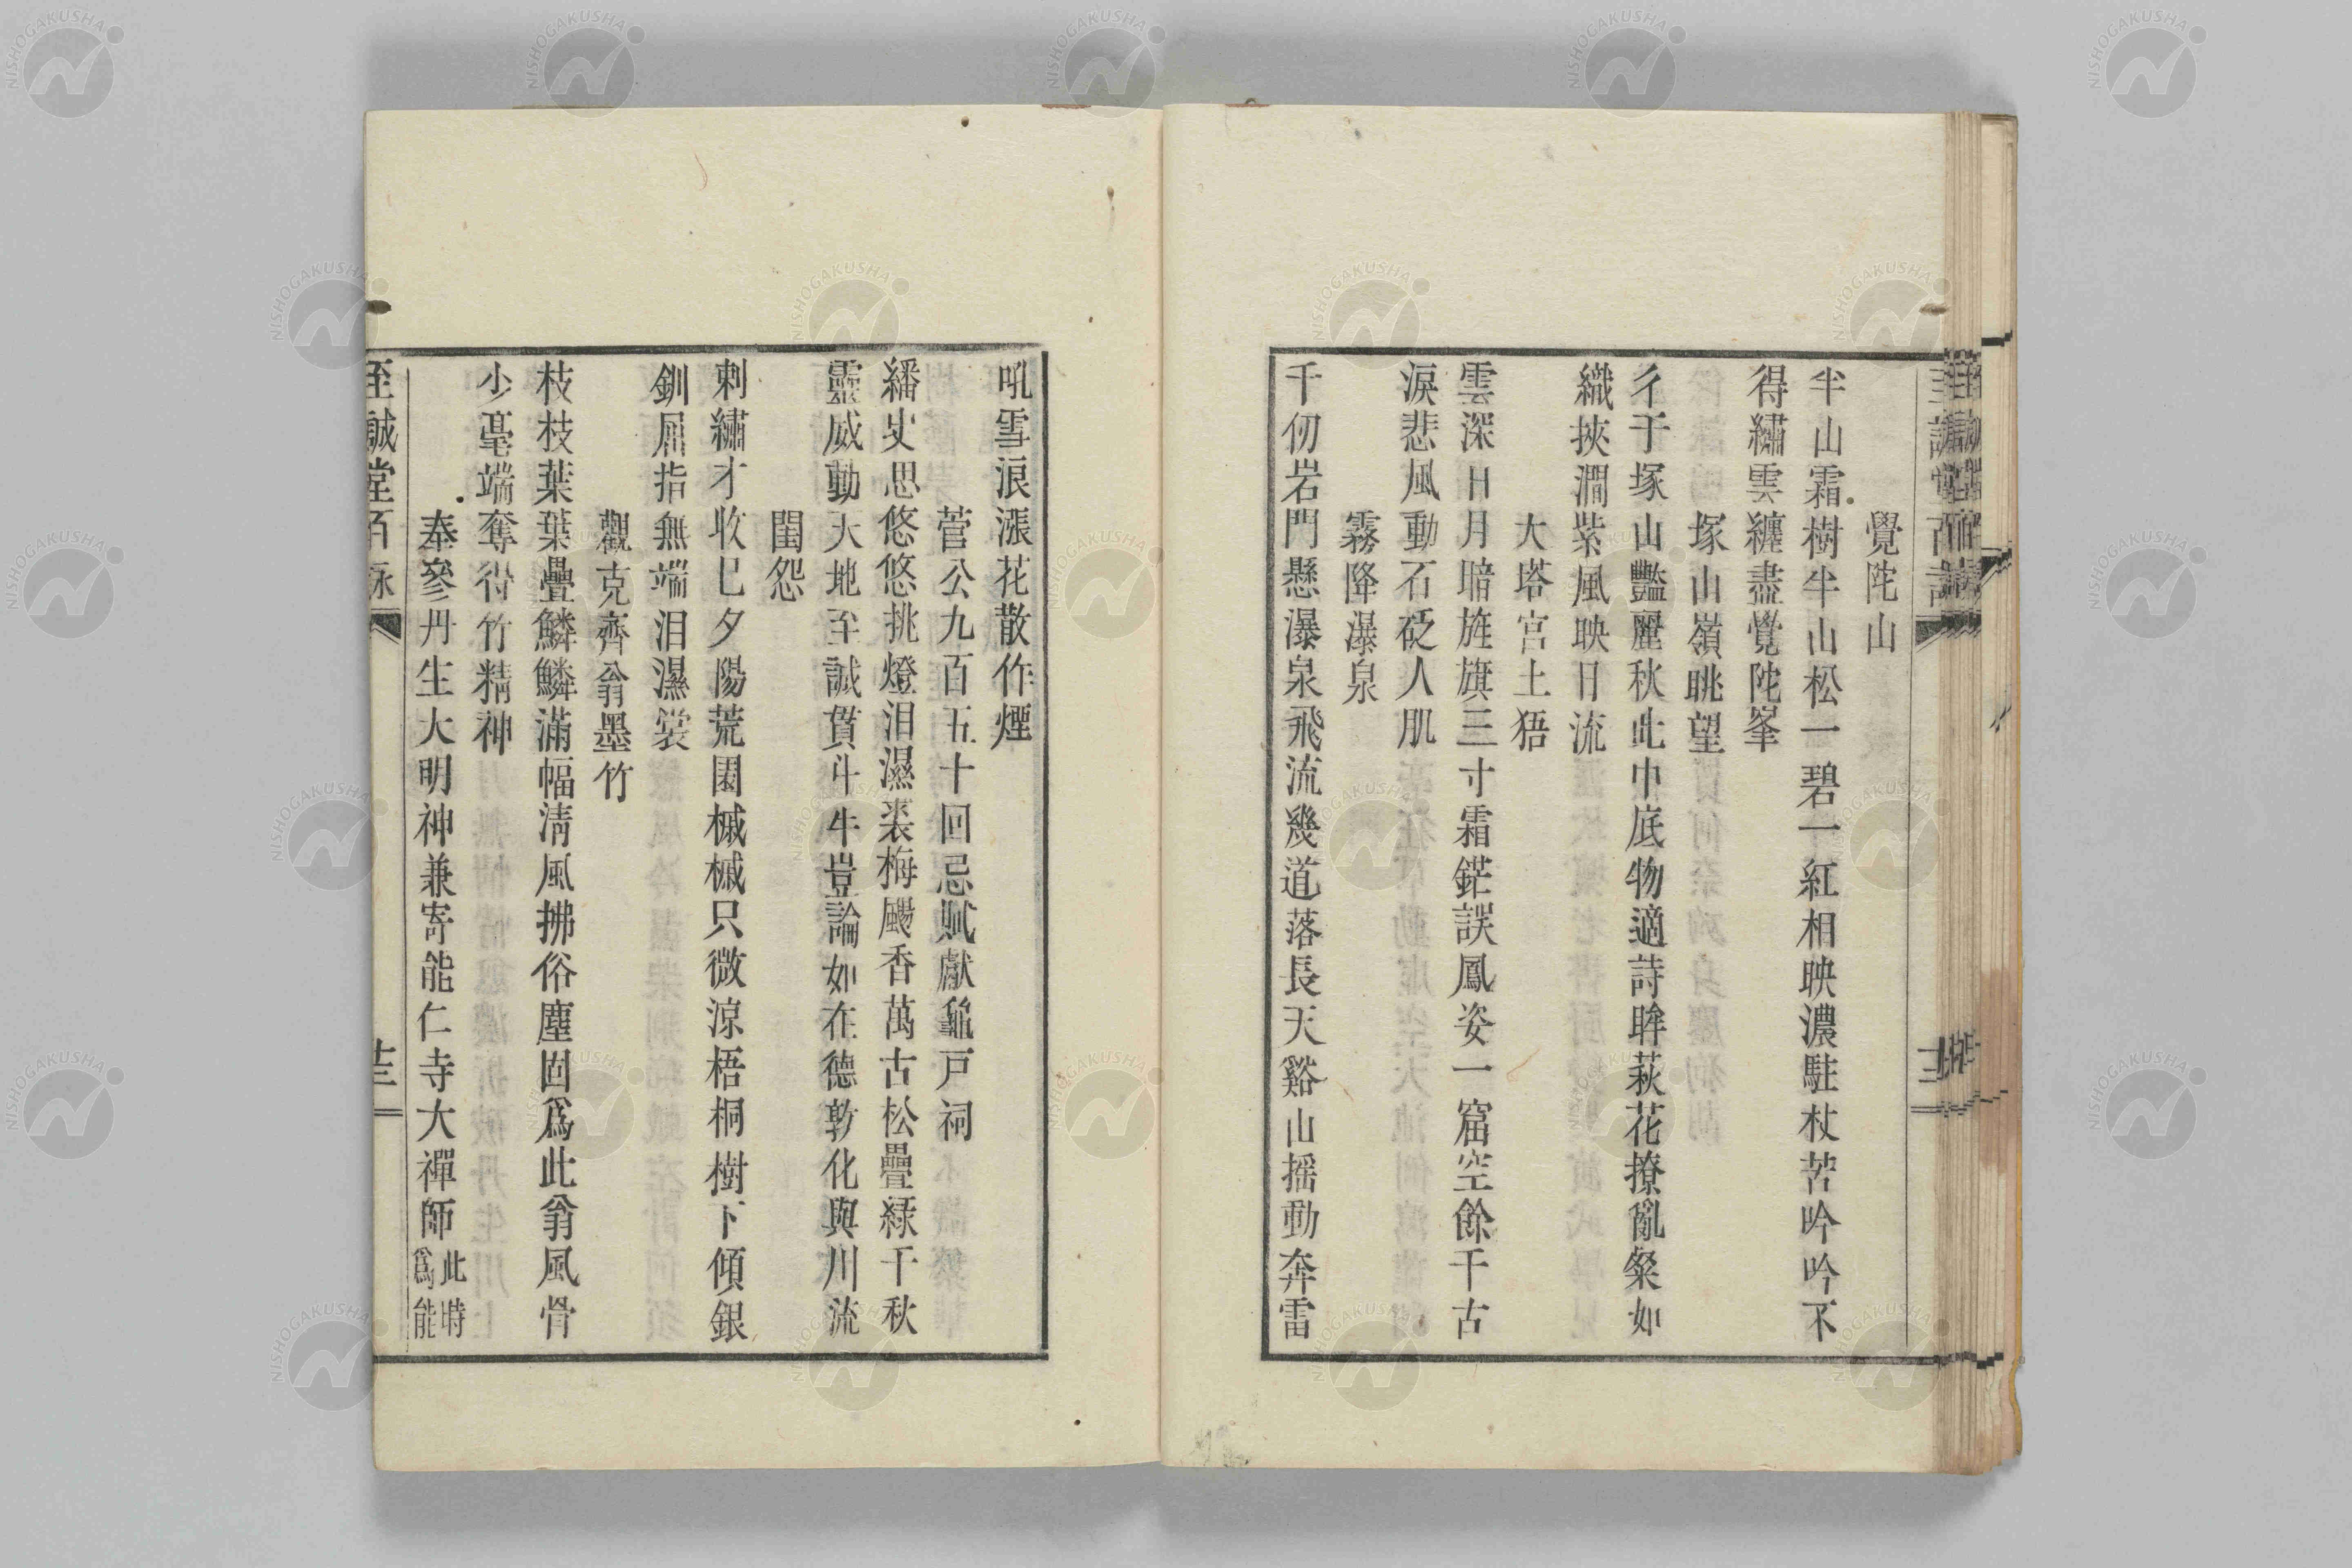 覺陀山
半山霜樹半山松一碧一紅相映濃駐杖苦吟吟不
得繡雲纏盡覺陀峯
塚山嶺眺望
彳于塚山豔麗秋此中底物適詩眸萩花撩亂粲如
織挾澗紫風映日流
大塔宮土牢
雲深日月暗旌旗三寸霜鋩誤鳳姿一窟空餘千古
淚悲風動石砭人肌
霧降瀑泉
千仞岩門懸瀑泉飛流幾道落長天谿山搖動奔雷
吼雪浪漲花散作煙
菅公九百五十回忌賦獻龜戸祠
繙史思悠悠挑燈泪濕裘梅颺香萬古松疊綠千秋
靈威動大地至誠貫斗牛豈論如在德敦化與川流
閨怨
刺繡才收已夕陽荒園槭槭只微涼梧桐樹下傾銀
釧屈指無端泪濕裳
觀克齊翁墨竹
枝枝葉葉疊鱗鱗滿幅淸風拂俗塵固爲此翁風骨
少毫端奪得竹精神
奉參丹生大明神兼寄能仁寺大禪師此時
爲能
至誠堂百詠
十三
NISHOGAKUSHA